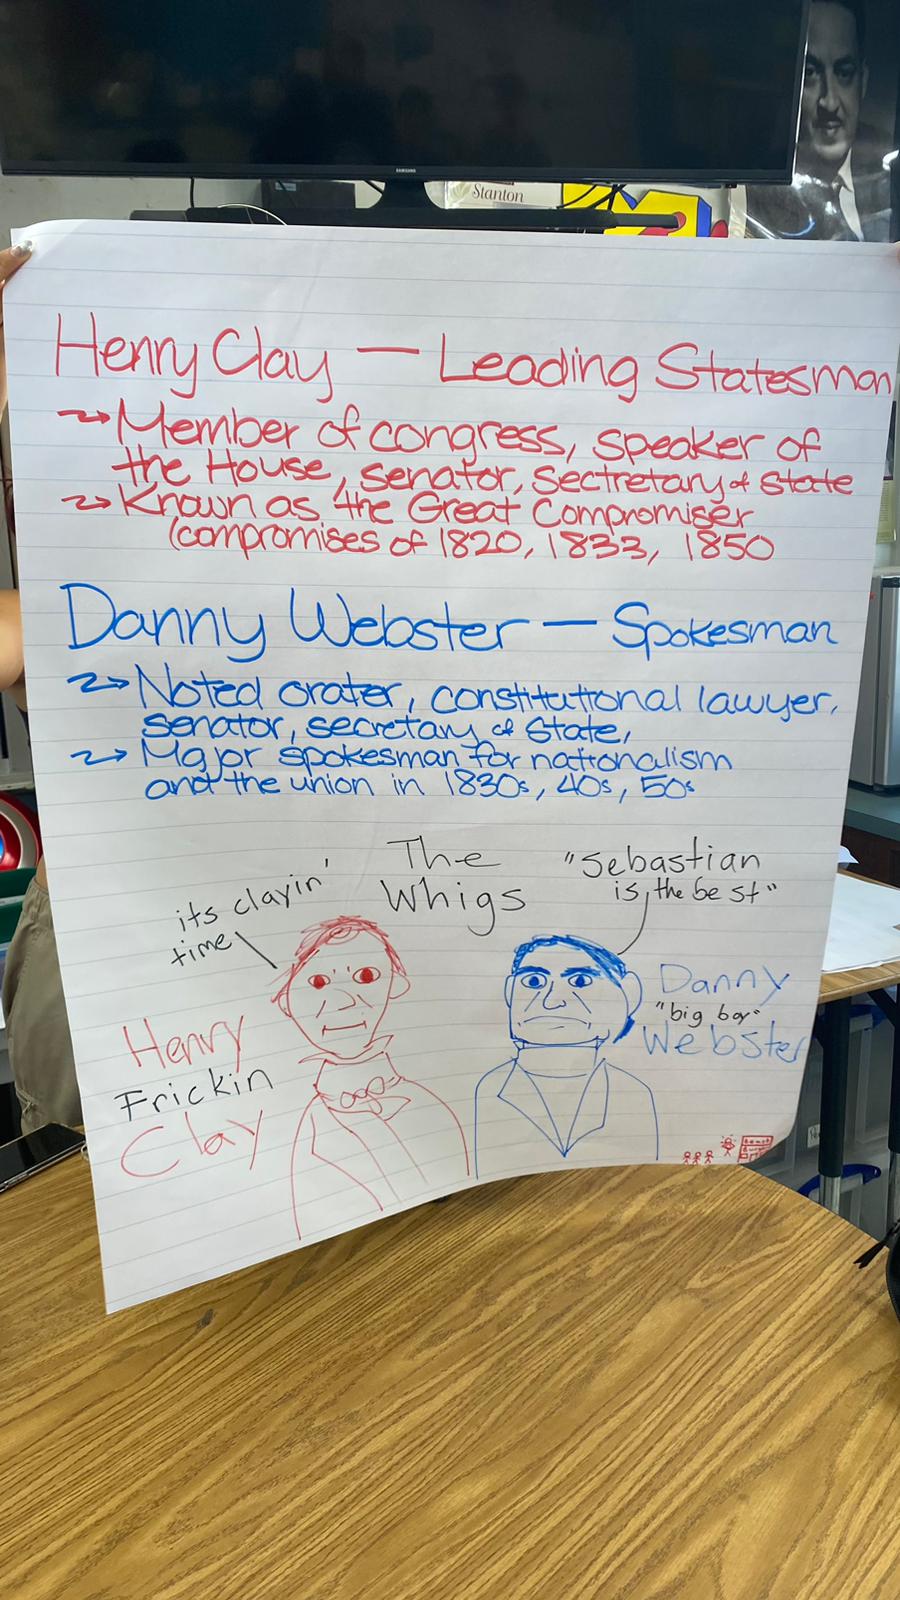 SAMSUNG
Stanton
Henry Clay — Leading Statesman
Member of congress, speaker of
the House, senator, Sectretary of State
Known as "the Great Compromiser
(compromises of 1820, 1833, 1850
Danny Webster — Spokesman
Noted orater, constitutional lawyer,
senator, secretary of State,
Major spokesman for nationalism
and the union in 1830s, 40s, 50s
The
Whigs
its clayin'
time
"Sebastian
is the best"
Henry
Frickin
Clay
Danny
"big boy"
Webster